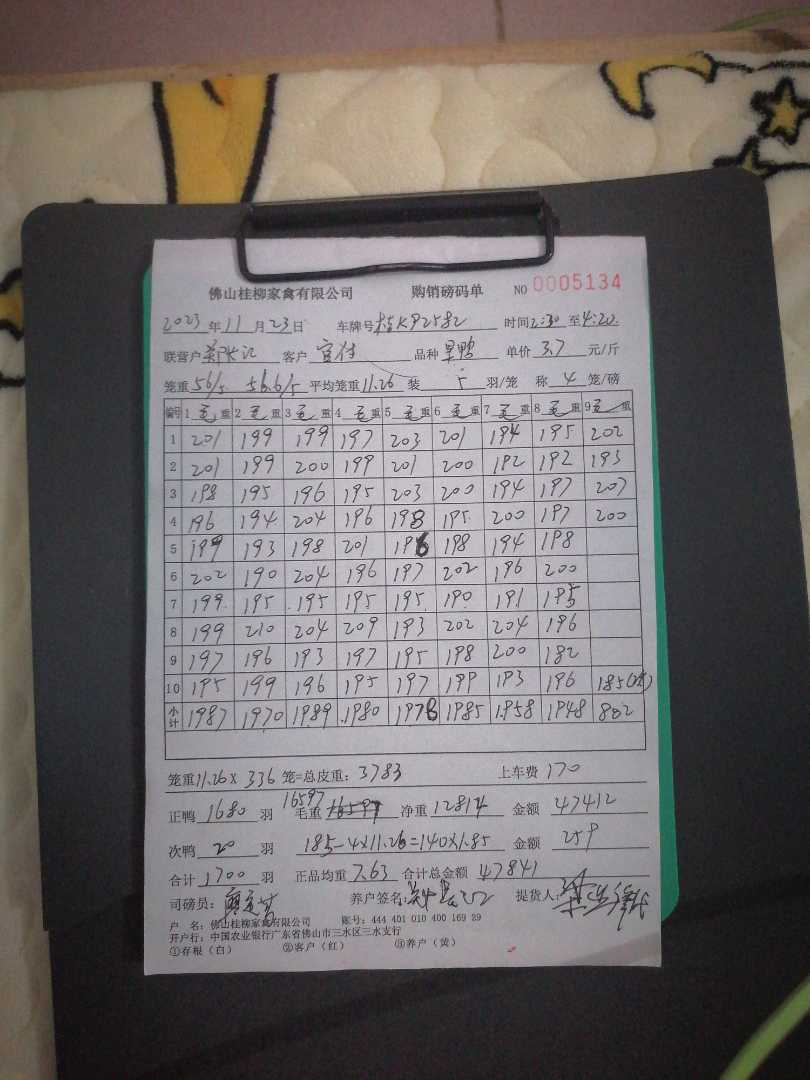 佛山桂柳家禽有限公司 购销磅码单 NO 0005134
2023年11月23日 车牌号 桂KP2582 时间2:30至4:20
联营户 客户 品种 单价 3.7 元/斤
笼重56/5 56.6/5 平均笼重11.26 装 5 羽/笼 称 4 笼/磅
编号 1毛重 2毛重 3毛重 4毛重 5毛重 6毛重 7毛重 8毛重 9毛重
1 201 199 199 197 203 201 194 195 202
2 201 199 200 199 201 200 192 192 193
3 198 195 196 195 203 200 194 197 207
4 196 194 204 196 198 195 200 197 200
5 199 193 198 201 196 198 194 198
6 202 190 204 196 197 202 196 200
7 199 195 195 195 195 190 191 195
8 199 210 204 209 193 202 204 196
9 197 196 193 197 195 198 200 182
10 195 199 196 195 197 199 193 196 185(次)
小计 1987 1970 1989 1980 1978 1985 1958 1948 802
笼重11.26× 336 笼=总皮重：3783 上车费 170
正鸭 1680 羽 毛重 16597 净重 12814 金额 47412
次鸭 20 羽 185-4×11.26=140×1.85 金额 259
合计 1700 羽 正品均重 7.63 合计总金额 47841
司磅员： 养户签名： 提货人：
户 名：佛山桂柳家禽有限公司 账号：444 401 010 400 169 29
开户行：中国农业银行广东省佛山市三水区三水支行
①存根（白） ②客户（红） ③养户（黄）